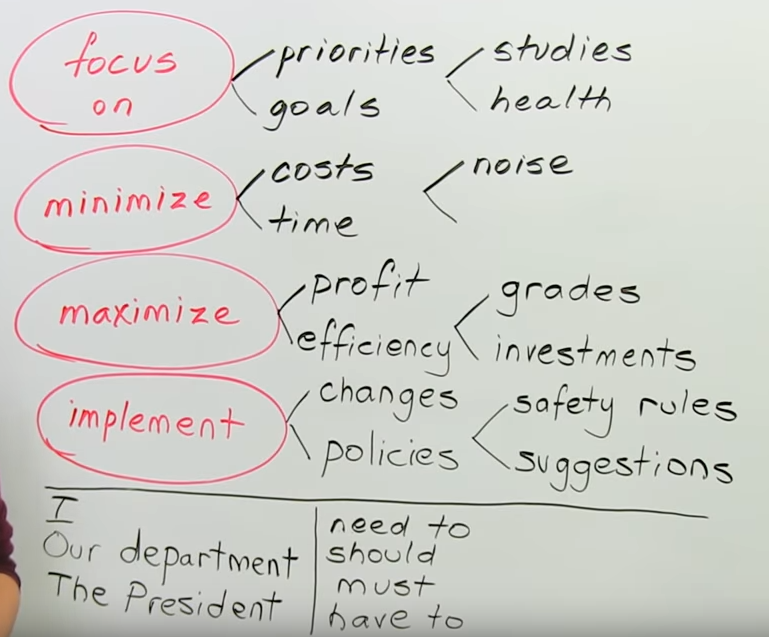 focus on
priorities
goals
studies
health
minimize
costs
time
noise
maximize
profit
efficiency
grades
investments
implement
changes
policies
safety rules
suggestions
I
Our department
The President
need to
should
must
have to